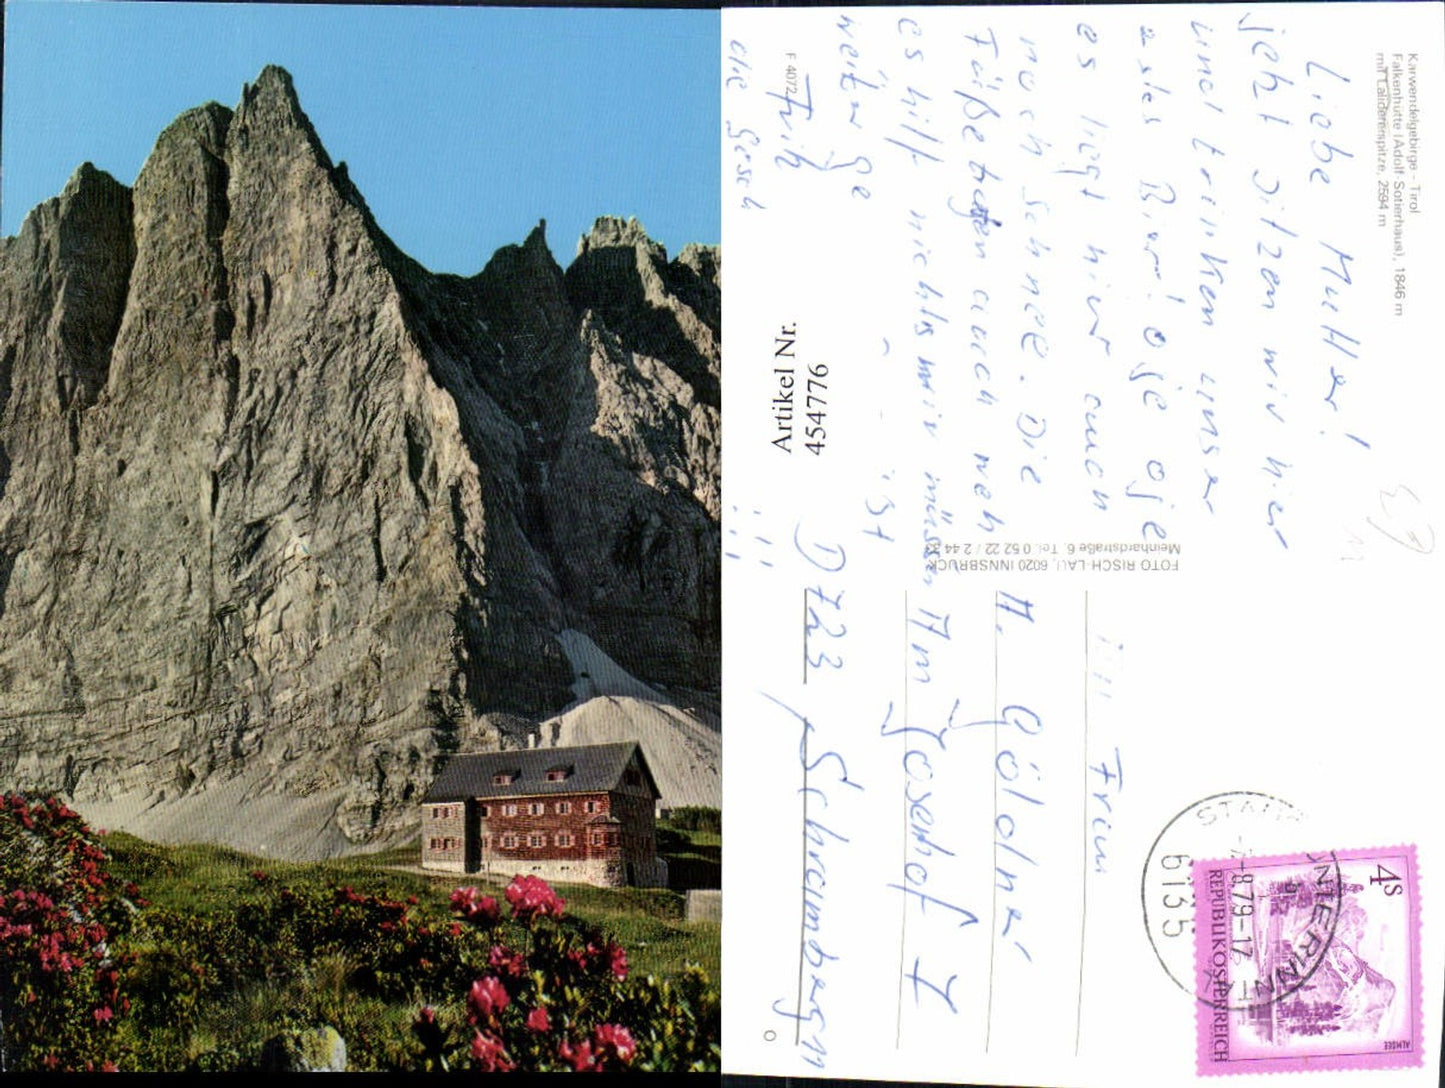 Karwendelgebirge - Tirol
Falkenhütte (Adolf-Sotierhaus), 1846 m
mit Lalidererspitze, 2594 m
Liebe Mutter!
jetzt sitzen wir hier
und trinken unser
Bier! oje oje
es liegt hier auch
noch Schnee. Die
Füße tuen auch weh
es hilft nichts wir müssen
weiter ge
ist
F 4072
Artikel Nr.
454776
FOTO RISCH-LAU, 6020 INNSBRUCK
Meinhardstraße 6, Tel. 0 52 22 / 2 44 33
Frau
A. Göldner
Am Josenhof 1
D 723 Schramberg
6135
8.79-17
4S
REPUBLIK ÖSTERREICH
ALMSEE